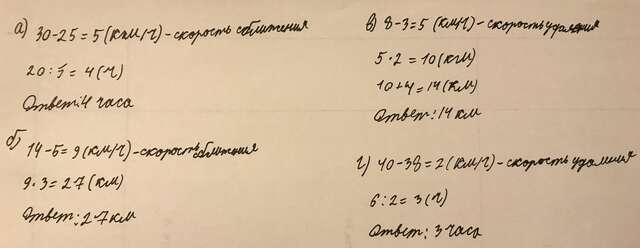 а) 30-25=5(км/ч)-скорость сближения
20:5=4(ч)
Ответ:4 часа
б) 14-5=9(км/ч)-скорость сближения
9·3=27(км)
Ответ:27км
в) 8-3=5(км/ч)-скорость удаления
5·2=10(км)
10+4=14(км)
Ответ:14км
г) 40-38=2(км/ч)-скорость удаления
6:2=3(ч)
Ответ:3часа